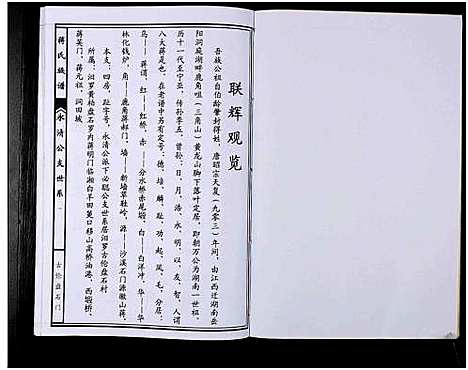 联辉观览
吾族公祖自伯龄肇封得姓，唐昭宗天复（九〇三）年间，由江西迁湖南岳
阳洞庭湖畔鹿角咀（三角山）黄龙山脚下落叶定居，即朝万公为湖南一世祖。
历十一代至宁亚，传孙季五，曾孙：日、月、浩、水、明、以、友、智，人谓
八大蒋是也。在老谱中另有定号：德、埔、麟、趾、功、起、凤、毛，分居：
乌——蒋谓，红——桥，赤——分水桥赤尾塅，白——白洋冲，华——华
林化钱炉，角——鹿角蒋郝门，墙——新墙草鞋岭，源——沙溪石门源徽山蒋。
本支：四房，趾字号，永清公派下必聪公支世系居汨罗古伦盘石村
所属：汨罗黄柏盘石罗内蒋明门临湘白羊田筻口移山高桥油港、西塅桥、
蒋英门、蒋元祖、润田城
蒋氏族谱
永清公支世系
一
古伦盘石门